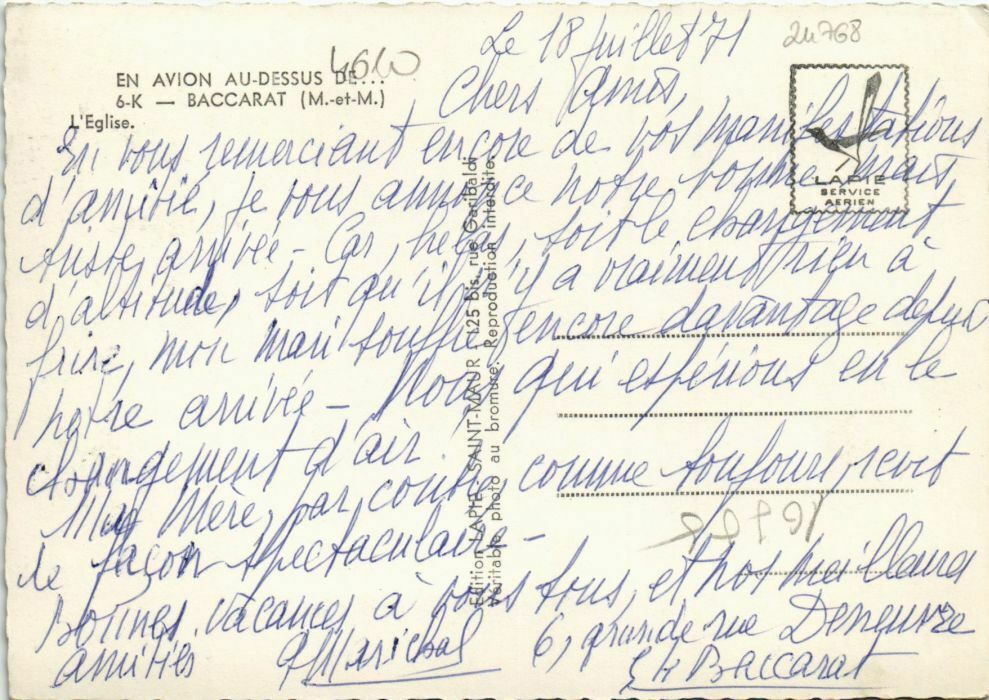 Le 18 juillet 71
24768
4610
EN AVION AU-DESSUS DE...
6-K — BACCARAT (M.-et-M.)
L'Eglise.
LAPIE
SERVICE
AERIEN
Chers Amis,
En vous remerciant encore de vos manifestations
d'amitié, je vous annonce notre bonne mais
triste, arrivée - Car, hélas, soit le changement
d'altitude, soit qu'il n'y a vraiment rien à
faire, mon mari souffre encore davantage depuis
notre arrivée - Nous, qui espérions en le
changement d'air.
Ma Mère, par contre, comme toujours, revit
de façon spectaculaire -
Bonnes vacances à vous tous, et nos meilleures
amitiés
6, grande rue Deneuvre
54 Baccarat
Edition LAPIE SAINT-MAUR 125 bis, rue Garibaldi
Véritable photo au bromure. Reproduction interdite